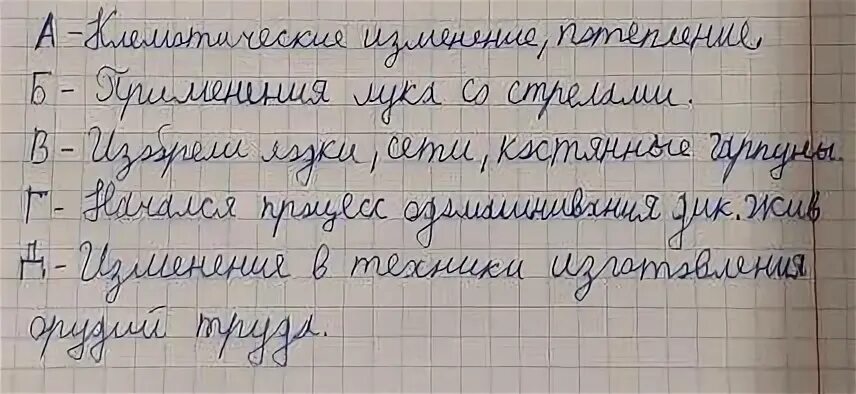 А - Клематические изменение, потепление,
Б - Применения лука со стрелами.
В - Изобрели лодки, сети, костянные гарпуны.
Г - Начался процесс одомашнивания дик. жив
Д - Изменение в техники изготовления
орудий труда.